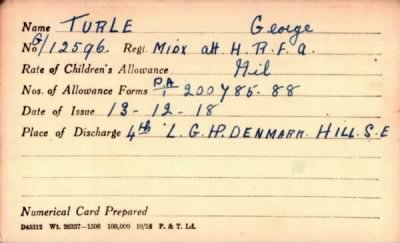 Name TURLE George
No G/12596. Regt. Midx att. H.R.F.A.
Rate of Children's Allowance Nil
Nos. of Allowance Forms P.A/1 200785-88
Date of Issue 13-12-18
Place of Discharge 4th L.G.H. DENMARK HILL. S.E
Numerical Card Prepared
D45212 Wt. 26337—1506 100,000 10/18 P. & T. Ld.